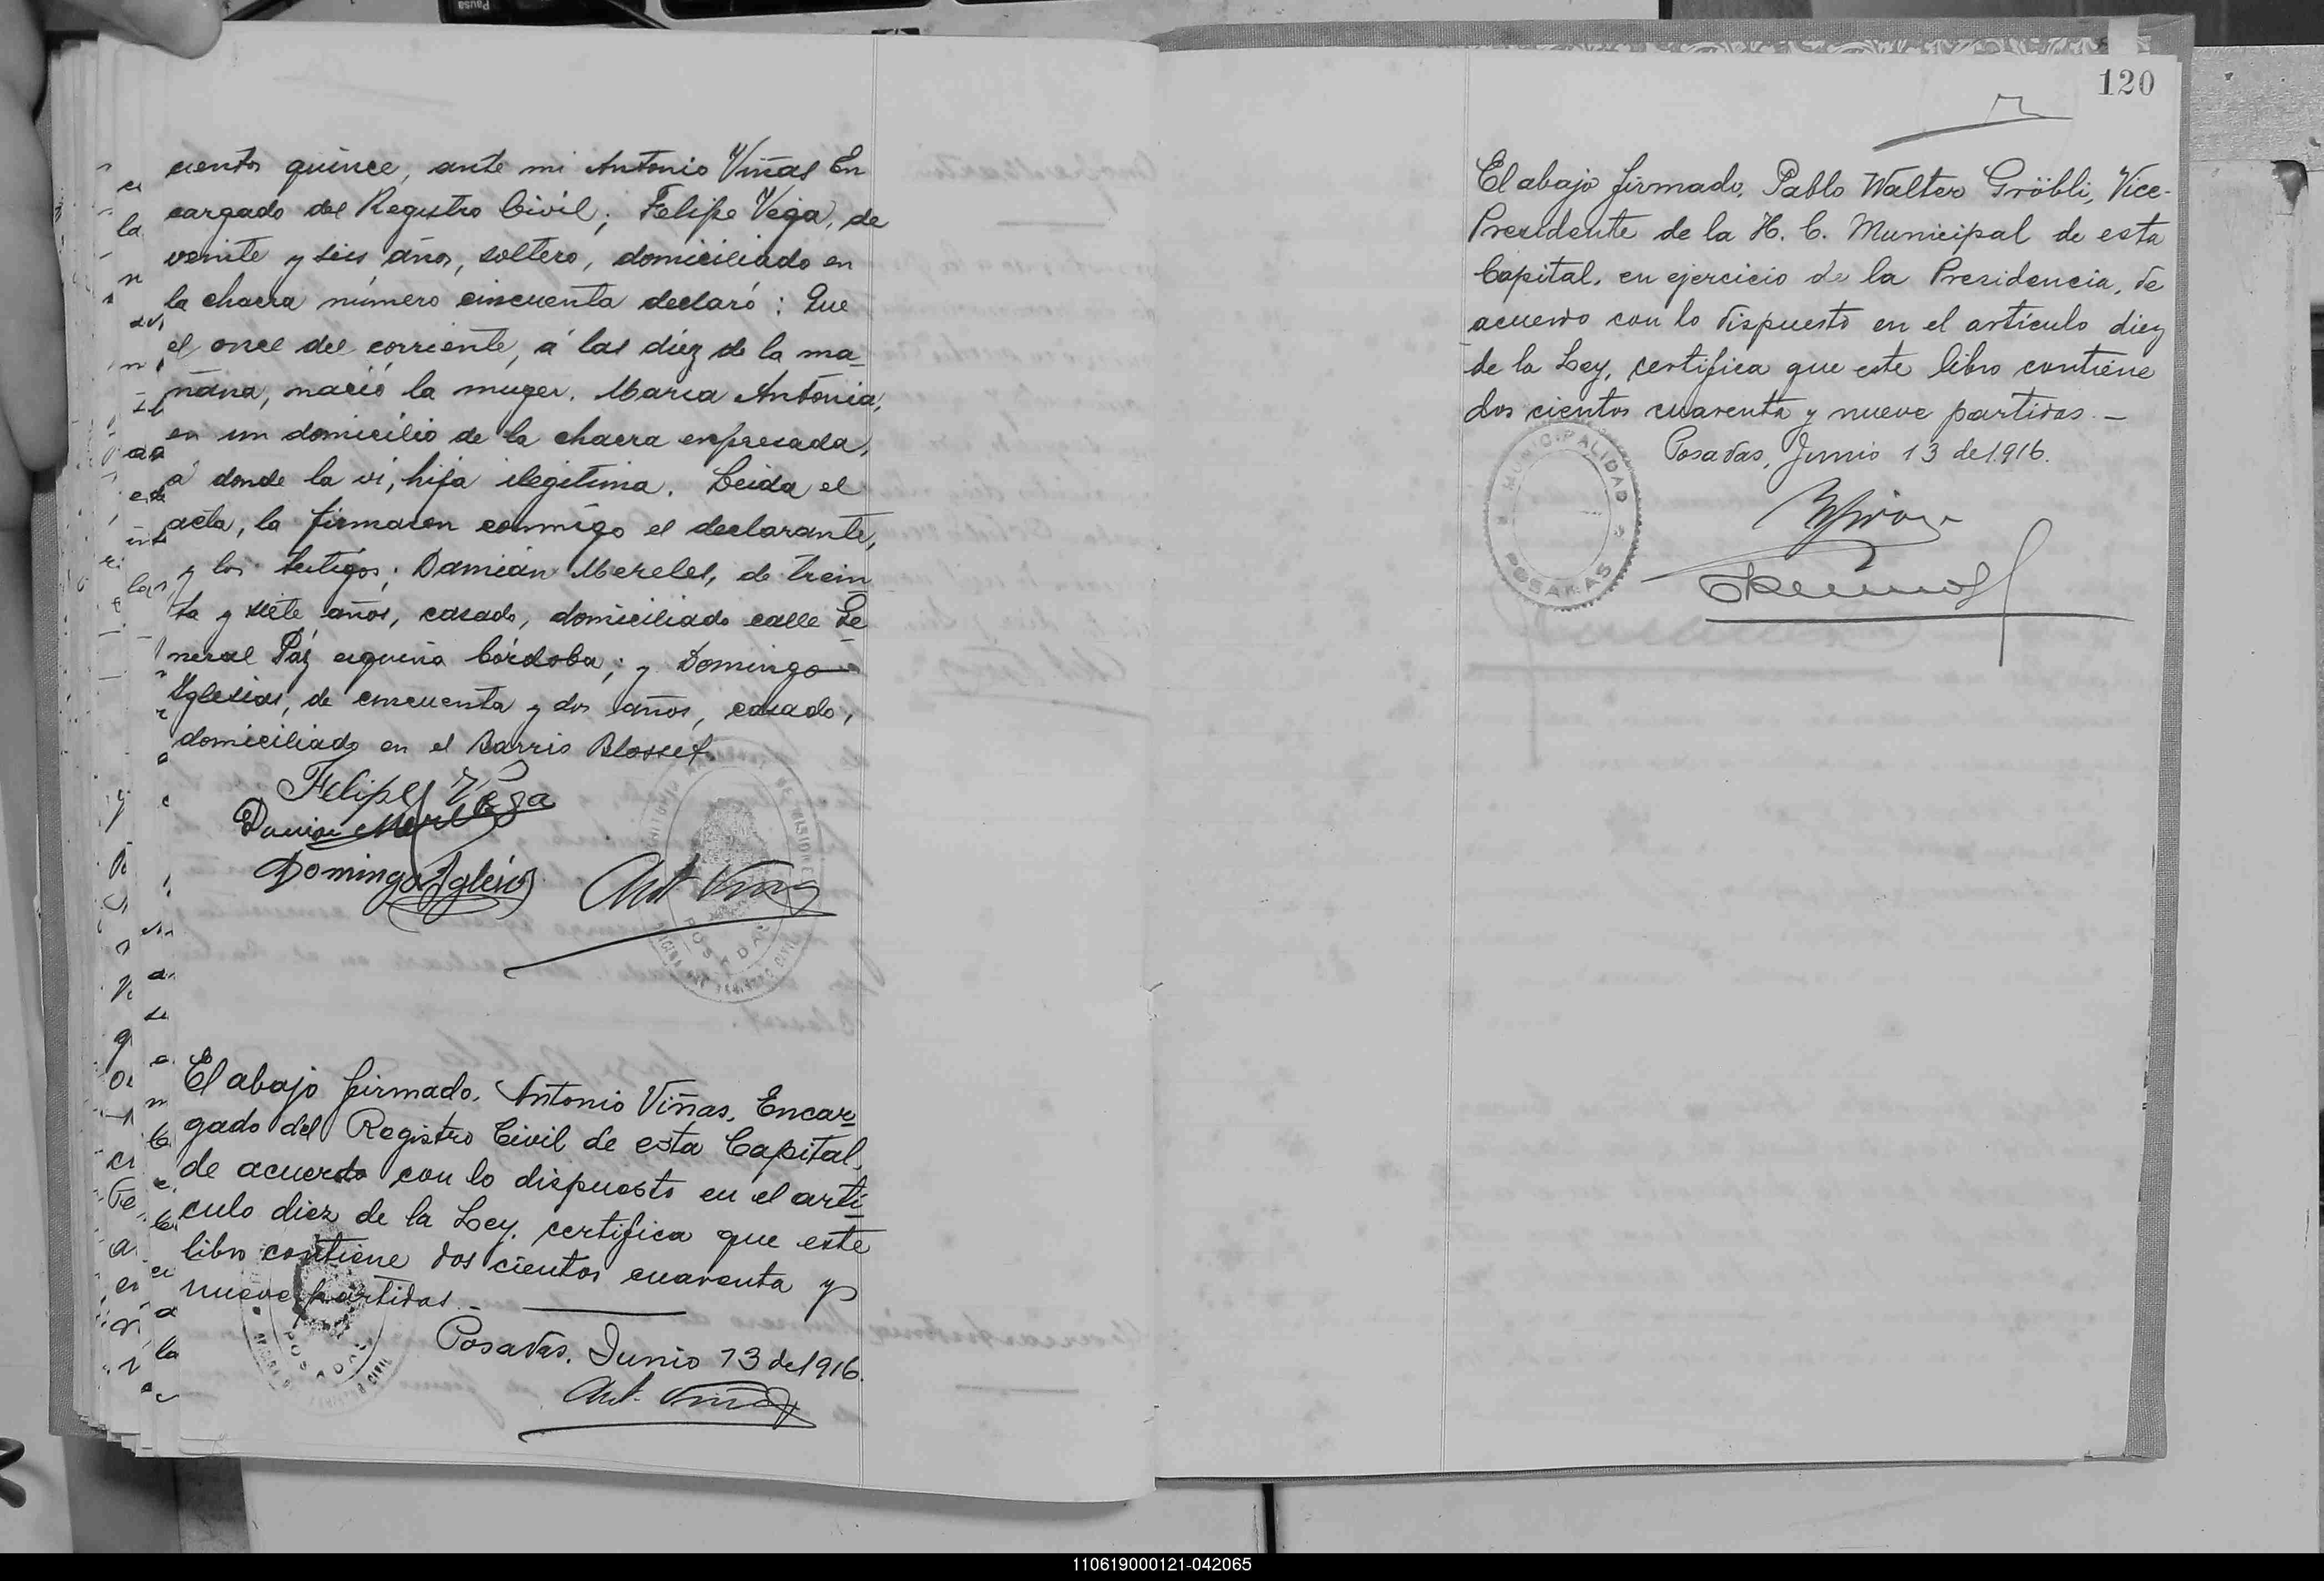 cientos quince, ante mi Antonio Viñas En
cargado del Registro Civil; Felipe Vega, de
veinte y seis años, soltero, domiciliado en
la chacra número cincuenta declaró: Que
el once del corriente, á las diez de la ma
ñana, nació la muger, Maria Antonia,
en un domicilio de la chacra expresada,
á donde la vi, hija ilegitima. Leida el
acta, la firmaron conmigo el declarante,
y los testigos; Damián Mereles, de trein
ta y siete años, casado, domiciliado calle Ge
neral Páz esquina Córdoba; y Domingo
Yglesias, de cincuenta y dos años, casado,
domiciliado en el Barrio Blosset.
Felipe Vega
Damian Mereles
Domingo Yglesias
Ant Viñas
POSADAS
El abajo firmado, Antonio Viñas, Encar
gado del Registro Civil de esta Capital,
de acuerdo con lo dispuesto en el artí
culo diez de la Ley, certifica que este
libro contiene dos cientos cuarenta y
nueve partidas.—
Posadas, Junio 13 de 1916.
Ant. Viñas
POSADAS
120
El abajo firmado, Pablo Walter Gröbli, Vice-
Presidente de la H. C. Municipal de esta
Capital, en ejercicio de la Presidencia, de
acuerdo con lo dispuesto en el artículo diez
de la Ley, certifica que este libro contiene
dos cientos cuarenta y nueve partidas.—
Posadas, Junio 13 de 1916.
MUNICIPALIDAD
POSADAS
110619000121-042065